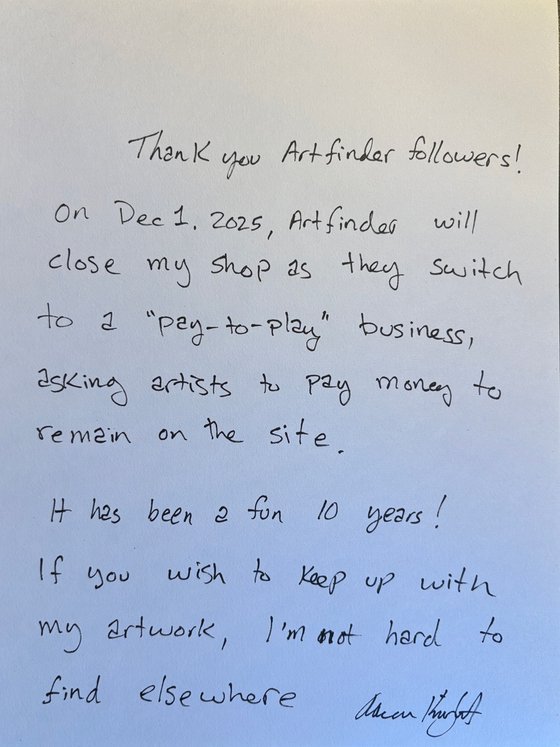 Thank you Artfinder followers!
On Dec 1. 2025, Artfinder will
close my shop as they switch
to a "pay-to-play" business,
asking artists to pay money to
remain on the site.
It has been a fun 10 years!
If you wish to keep up with
my artwork, I'm not hard to
find elsewhere